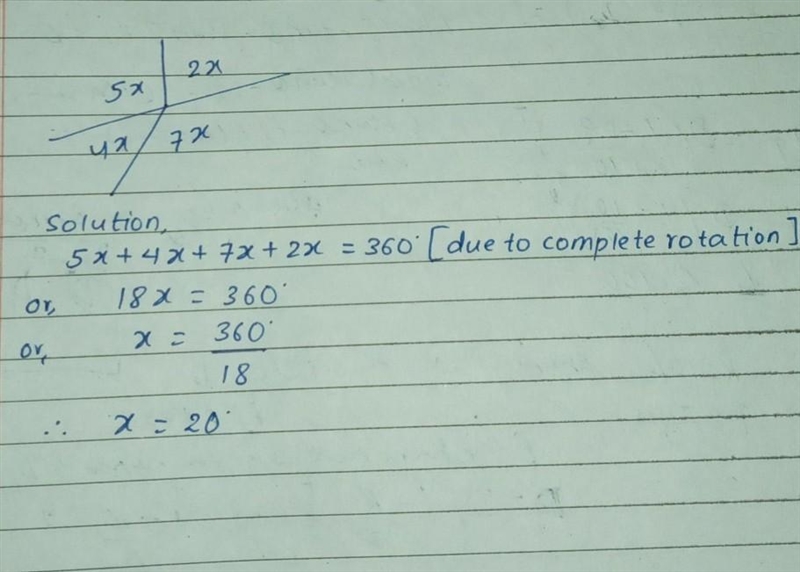 5x 2x
4x 7x
Solution,
5x + 4x + 7x + 2x = 360° [due to complete rotation]
or, 18x = 360°
or, x = 360°
18
∴ x = 20°